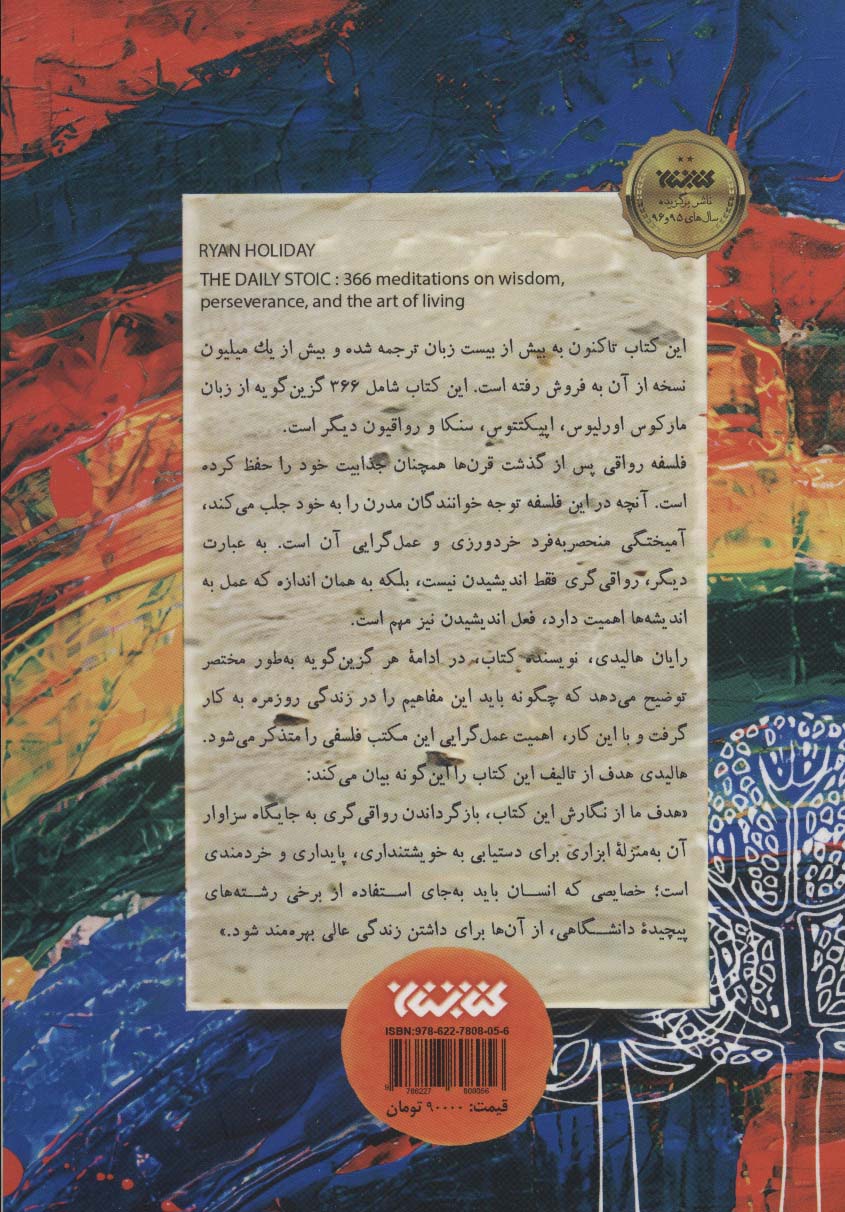 کتابستان
ناشر برگزیده
سال‌های ۹۵ و ۹۶
RYAN HOLIDAY
THE DAILY STOIC : 366 meditations on wisdom,
perseverance, and the art of living
این کتاب تاکنون به بیش از بیست زبان ترجمه شده و بیش از یك میلیون
نسخه از آن به فروش رفته است. این کتاب شامل ۳۶۶ گزین‌گویه از زبان
مارکوس اورلیوس، اپیکتتوس، سنکا و رواقیون دیگر است.
فلسفه رواقی پس از گذشت قرن‌ها همچنان جذابیت خود را حفظ کرده
است. آنچه در این فلسفه توجه خوانندگان مدرن را به خود جلب می‌کند،
آمیختگی منحصربه‌فرد خردورزی و عمل‌گرایی آن است. به عبارت
دیگر، رواقی‌گری فقط اندیشیدن نیست، بلکه به همان اندازه که عمل به
اندیشه‌ها اهمیت دارد، فعل اندیشیدن نیز مهم است.
رایان هالیدی، نویسنده کتاب، در ادامهٔ هر گزین‌گویه به‌طور مختصر
توضیح می‌دهد که چگونه باید این مفاهیم را در زندگی روزمره به کار
گرفت و با این کار، اهمیت عمل‌گرایی این مکتب فلسفی را متذکر می‌شود.
هالیدی هدف از تالیف این کتاب را این‌گونه بیان می‌کند:
«هدف ما از نگارش این کتاب، بازگرداندن رواقی‌گری به جایگاه سزاوار
آن به‌منزلهٔ ابزاری برای دستیابی به خویشتنداری، پایداری و خردمندی
است؛ خصایصی که انسان باید به‌جای استفاده از برخی رشته‌های
پیچیدهٔ دانشگاهی، از آن‌ها برای داشتن زندگی عالی بهره‌مند شود.»
کتابستان
ISBN:978-622-7808-05-6
9 786227 808056
قیمت: ۹۰۰۰۰ تومان